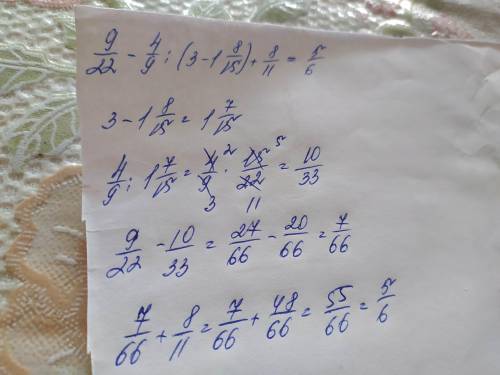 9/22 - 4/9 : (3 - 1 8/15) + 8/11 = 5/6
3 - 1 8/15 = 1 7/15
4/9 : 1 7/15 = 4/9 · 15/22 = 10/33
2 5
3 11
9/22 - 10/33 = 27/66 - 20/66 = 7/66
7/66 + 8/11 = 7/66 + 48/66 = 55/66 = 5/6